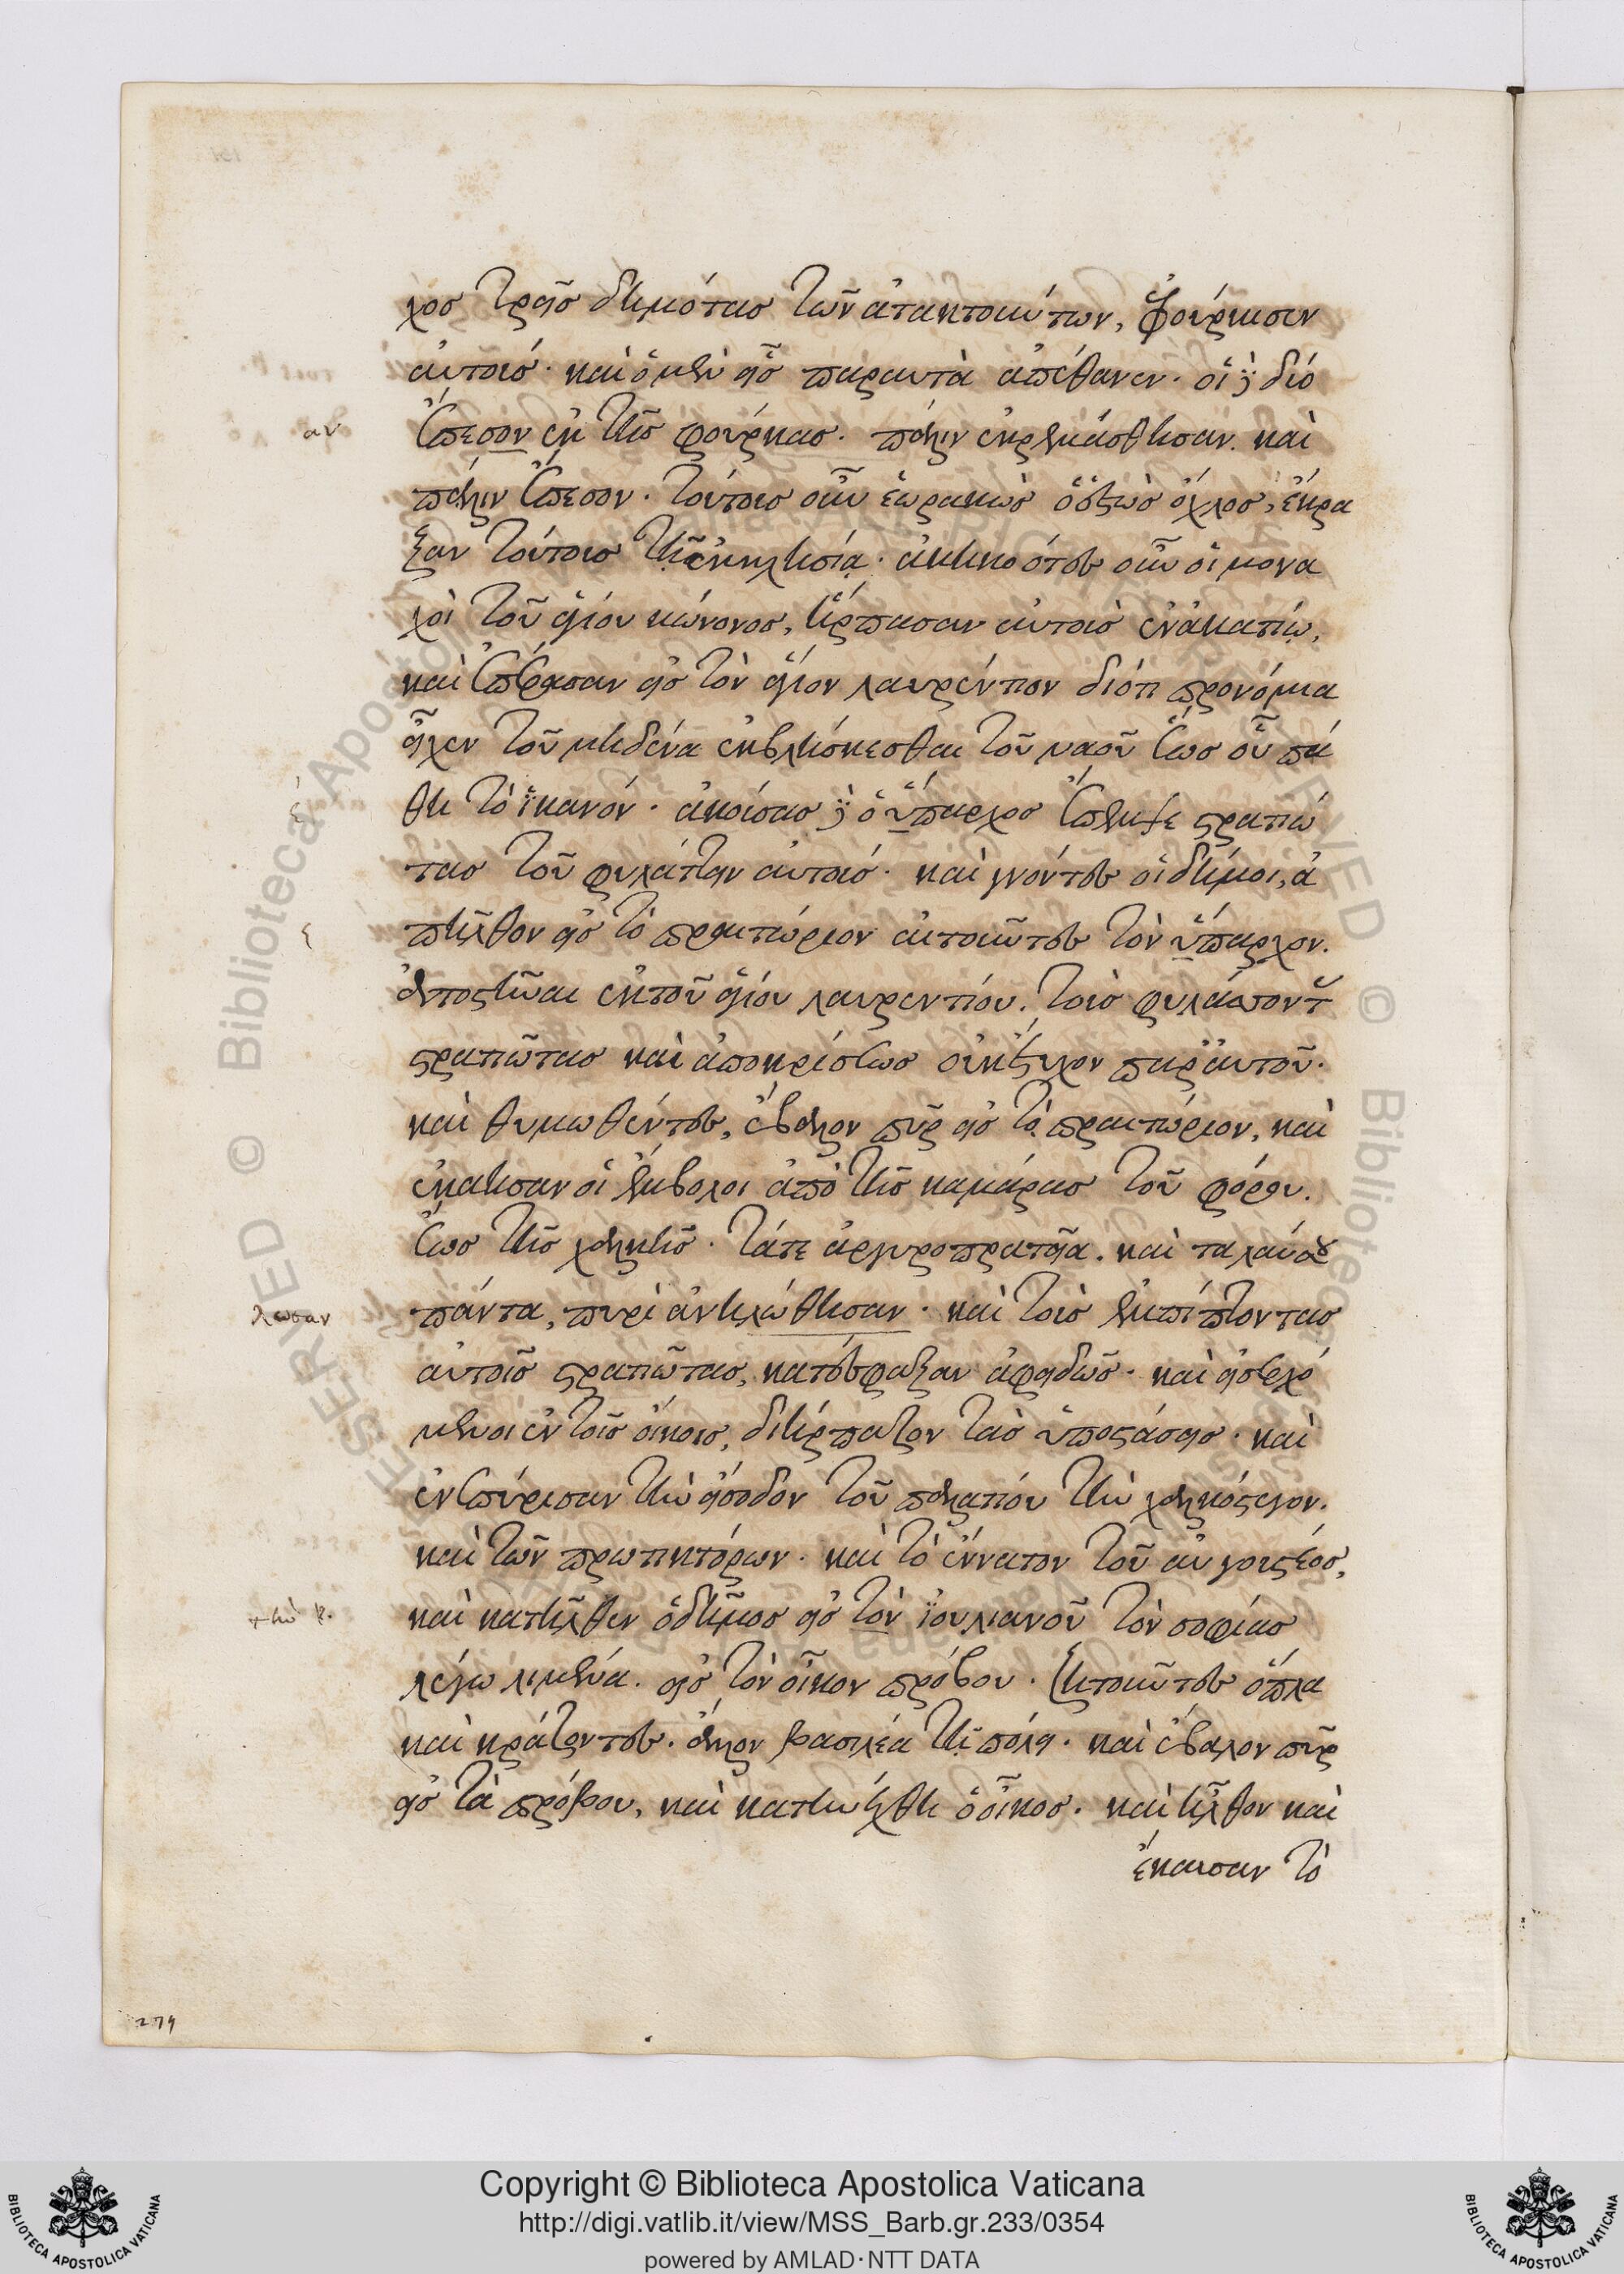 χος τρεῖς δημότας τῶν ἀτακτούντων, ἐφούρκισεν
αὐτούς· καὶ ὁ μὲν εἷς παραυτὰ ἀπέθανεν· οἱ δὲ δύο
αν ἔπεσον ἐκ τῆς φούρκας· πάλιν ἐκρεμάσθησαν. καὶ
πάλιν ἔπεσον. τούτους οὖν ἑωρακὼς ὁ ἑστὼς ὄχλος, ἔκρα
ξαν τούτους τῇ ἐκκλησίᾳ. ἀκηκοότες οὖν οἱ μονα
χοὶ τοῦ ἁγίου κώνονος, ἥρπασαν αὐτοὺς ἐν ἀκατίῳ,
καὶ ἐπέρασαν εἰς τὸν ἅγιον λαυρέντιον διότι προνόμια
εἶχεν τοῦ μηδένα ἐκβληίσκεσθαι τοῦ ναοῦ ἕως οὗ πά
έ θη τὸ ἱκανόν. ἀκούσας δὲ ὁ ὕπαρχος ἔπεμψε στρατιώ
τας τοῦ φυλάττειν αὐτούς· καὶ γνόντες οἱ δῆμοι, ἀ
ε πῆλθον εἰς τὸ πραιτώριον αἰτοῦντες τὸν ὕπαρχον.
ἀποστῆναι ἐκ τοῦ ἁγίου λαυρεντίου. τοὺς φυλάττοντας
στρατιῶτας καὶ ἀποκρίσεως οὐκ ἔτυχον παρ' αὐτοῦ.
καὶ θυμωθέντες, ἔβαλον πῦρ εἰς τὸ πραιτώριον, καὶ
ἐκάησαν οἱ ἔμβολοι ἀπὸ τῆς καμάρας τοῦ φόρου.
ἕως τῆς χαλκῆς. τά τε ἀργυροπρατεῖα. καὶ τα λαύσου
λωσαν πάντα, πυρὶ ἀνηλώθησαν. καὶ τοὺς ἐμπίπτοντας
αὐτοῖς στρατιῶτας, κατέσφαξαν ἀφειδῶς. καὶ εἰσερχό
μενοι ἐν τοῖς οἴκοις, διήρπαζον τὰς ὑποστάσεις. καὶ
ἐνεπύρισαν τὴν εἴσοδον τοῦ παλατίου τὴν χαλκόστεγον.
καὶ τῶν πρωτικτόρων. καὶ τὸ ἔννατον τοῦ αὐγουστέος,
τὴν κ. καὶ κατῆλθεν ὁ δῆμος εἰς τὸν ἰουλιανοῦ τὸν σοφίας
λέγω λιμένα. εἰς τὸν οἶκον πρόβου. ζητοῦντες ὅπλα
καὶ κράζοντες. ἄλλον βασιλέα τῇ πόλει. καὶ ἔβαλον πῦρ
εἰς τὰ πρόβου, καὶ κατηνέχθη ὁ οἶκος. καὶ ἦλθον καὶ
ἔκαυσαν τὸ
279
Copyright © Biblioteca Apostolica Vaticana
http://digi.vatlib.it/view/MSS_Barb.gr.233/0354
powered by AMLAD·NTT DATA